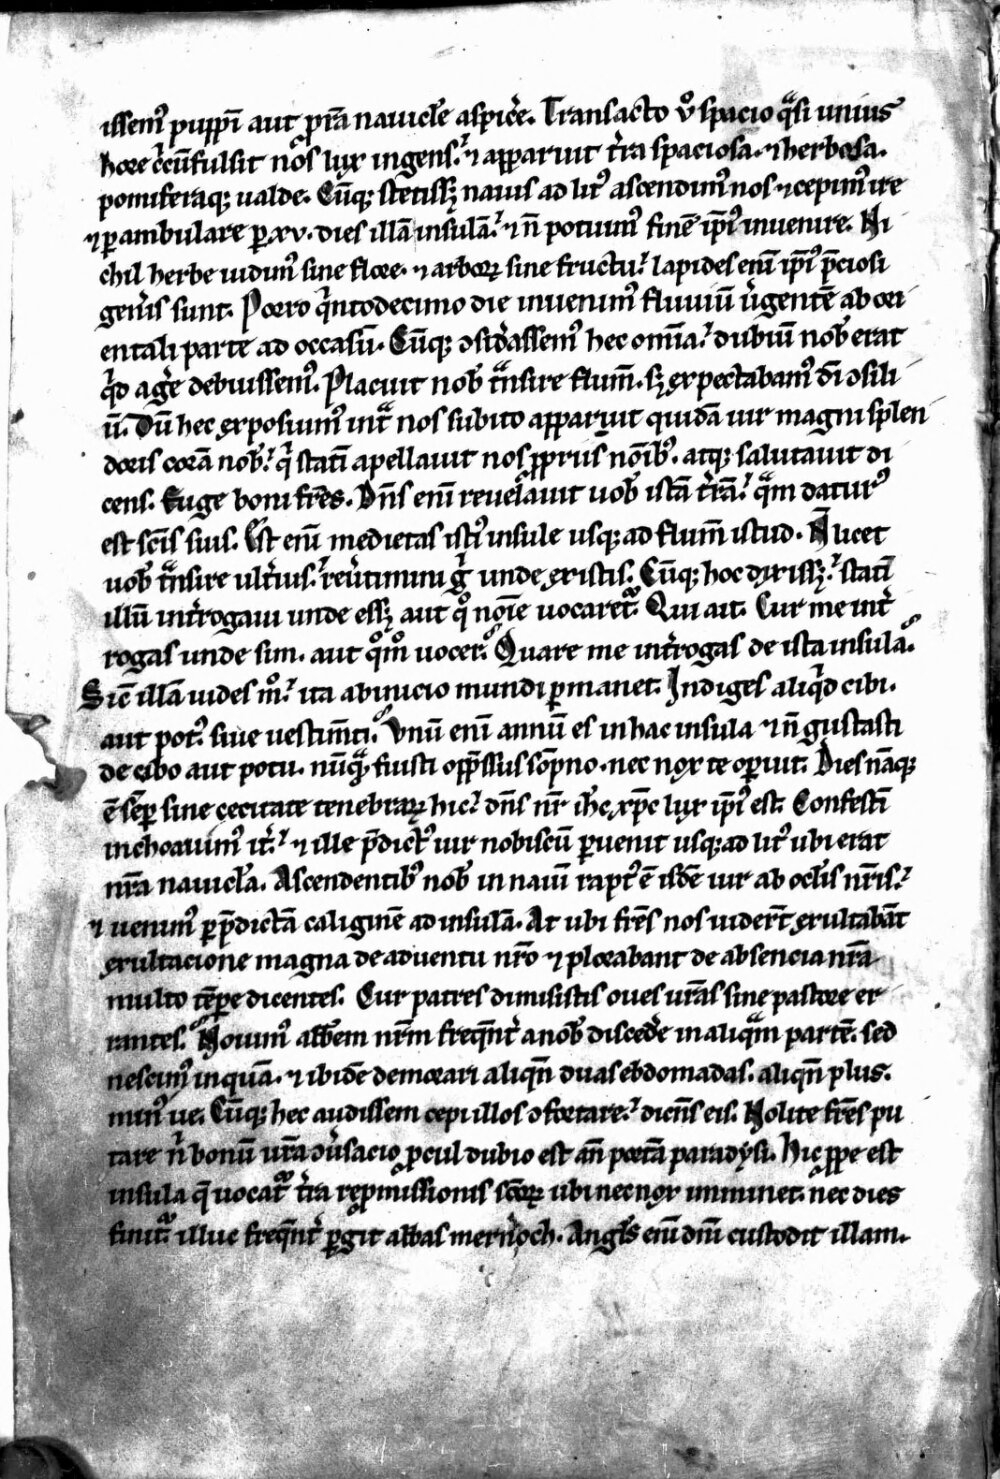 issemꝰ puppī aut p̄ra nauicl̄e aspic̉e. Transacto v̊ spacio q̈si unius
hore c̉cūfulsit nos̉ lux ingens.̉ ⁊ apparuit t̉ra spaciosa. ⁊ herbosa.
pomiferaq; ualde. Cūq; stetissꝫ nauis ad litꝰ ascendimꝰ nos ⁊ cepimꝰ ire
⁊ ꝑambulare ꝑ .xv. dies illā insulā.̉ ⁊ n̄ potuimꝰ finē ip̄iꝰ inuenire. Ni
chil herbe uidimꝰ sine flore. ⁊ arboꝝ sine fructu.̉ lapides enī ip̄iꝰ p̄ciosi
gen̉is sunt. Porro q̉ntodecimo die inuenimꝰ fluuiū v̉gentē ab ori
entali parte ad occasū. Cūq; ꝯsid̉assemꝰ hec omīa.̉ dubiū nob̄ erat
q̉d ag̉e debuissemꝰ. Placuit nob̄ t̃nsire flum̄. sꝫ expectabamꝰ dī ꝯsili
ū. Dū hec exposuimꝰ int̃ nos subito apparuit quidā uir magni splen
doris corā nob̄.̉ q̉ statī apellauit nos ꝓpriis noīb̉. atq; salutauit di
cens. Euge boni fr̄es. Dn̄s enī reuelauit uob̄ istā t̉rā.̉ q̃m daturꝰ
est scīs suis. Est enī medietas istiꝰ insule usq; ad flum̄ istud. N̄ licet
uob̄ t̃nsire ult̉ius.̉ reủtimini g̉ unde existis. Cūq; hoc dixissꝫ.̉ statī
illū int̉rogaui unde essꝫ aut q̊ noīe vocaret᷑. Qui ait. Cur me int̉
rogas unde sim. aut q̊m̊ uocer.̉ Quare me int̉rogas de ista insula.̉
Sic̄ illā uides m̊.̉ ita ab inicio mundi ꝑmanet. Indiges aliq̉d cibi.
aut potꝰ. siue uestim̄ti.̉ Vnū enī annū es in hac insula ⁊ n̄ gustasti
de cibo aut potu. nūq̃ fuisti opp̄ssus sōpno. nec nox te operuit. Dies nāq;
ē semꝑ sine cecitate tenebraꝝ hic.̉ dn̄s nr̄ ih̄c xp̄c lux ip̄iꝰ est. Confestī
inchoauimꝰ it̉.̉ ⁊ ille p̄dictꝰ uir nobiscū ꝑuenit usq; ad litꝰ ubi erat
nr̄a nauicl̄a. Ascendentibꝰ nob̄ in nauī raptꝰ ē isdē uir ab ocl̄is nr̄is.̉
⁊ uenimꝰ ꝑ p̄dictā caliginē ad insulā. At ubi fr̄es nos uider̄t exultabāt
exultacione magna de aduentu nr̄o ⁊ plorabant de absencia nr̄a
multo tēpe dicentes. Cur patres dimisistis oues ur̄as sine pastore er
rantes.̉ Nouimꝰ abb̄em nr̄m freq̄nt̉ a nob̄ disced̉e in aliq̃m partē. sed
nescimꝰ in quā. ⁊ ibidē demorari aliq̄n duas ebdomadas. aliq̄n plus.
minꝰ ue. Cūq; hec audissem cepi illos ꝯfortare.̉ dicn̄s eis. Nolite fr̄es pu
tare n̉ bonū ur̄a ꝯủsacio ꝓcul dubio est an̄ portā paradysi. Hic ꝓpe est
insula q̄ uocat᷑ t̉ra repmissionis sc̄oꝝ ubi nec nox imminet. nec dies
finit᷑ illuc freq̄nt̉ ꝑgit abbas mernoch. Angl̄s enī dn̄i custodit illam.